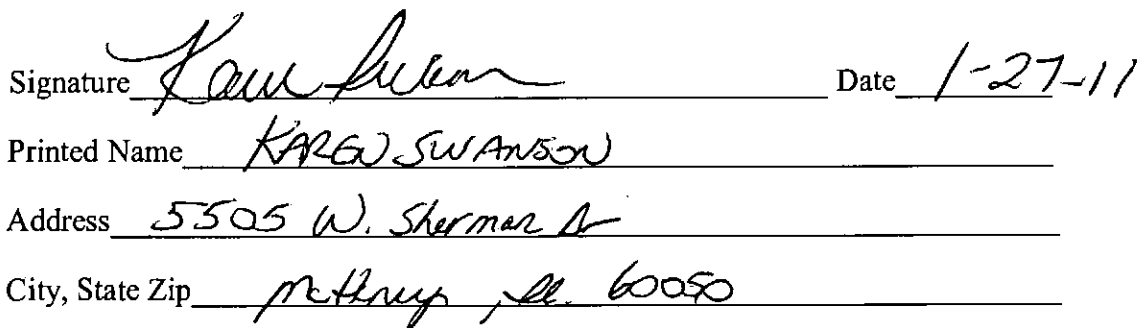 Signature Karen Swanson Date 1-27-11
Printed Name KAREN SWANSON
Address 5505 W. Sherman Dr
City, State Zip McHenry, Il. 60050